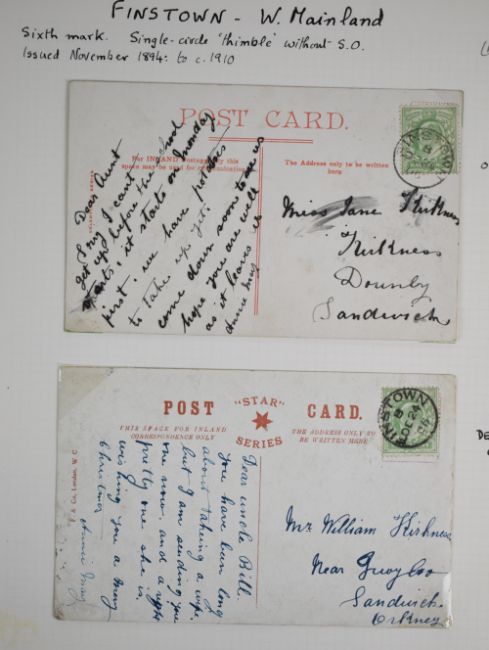 FINSTOWN - W. Mainland
Sixth mark. Single-circle 'thimble' without S.O.
Issued November 1894: to c.1910
POST CARD.
For INLAND Postage only this
space may be used for communication
The Address only to be written
here
Dear Aunt
Sorry I can't
get up before the school
starts, it starts on Monday
first. we have potatoes
to take up yet.
come down soon to see us
hope you are well
as it leaves us
Annie May
Miss Jane Kirkness
Kirkness
Dounby
Sandwick
FINSTOWN
POST "STAR" CARD.
SERIES
THIS SPACE FOR INLAND
CORRESPONDENCE ONLY
THE ADDRESS ONLY TO
BE WRITTEN HERE
FINSTOWN
DE 24
Dear uncle Bill.
You have been long
about taking a wife.
but I am sending you
one now, and a right
pretty one she is
wishing you a merry
Christmas
Annie May
& Co. London, W.C.
Mr William Kirkness
Near Quoyloo
Sandwick.
Orkney